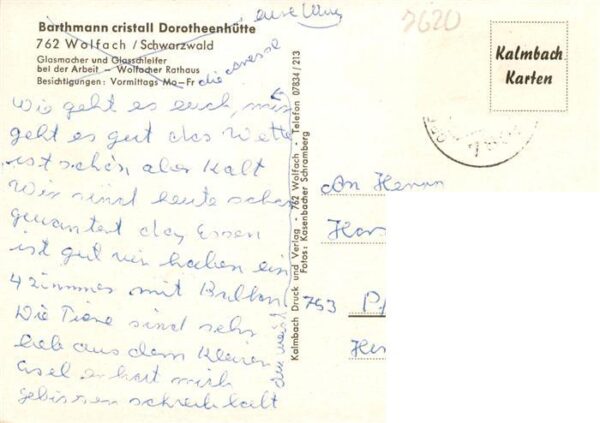 Barthmann cristall Dorotheenhütte
762 Wolfach / Schwarzwald
Glasmacher und Glasschleifer
bei der Arbeit – Wolfacher Rathaus
Besichtigungen: Vormittags Mo–Fr
wie geht es euch, mir
geht es gut das Wette
ist schön aber Kalt
Wir sind heute schon
gewantert das Essen
ist gut wir haben ein
4 zimmer mit Balkon
Die Tiere sind sehr
lieb aus dem Kleinen
esel er hat mich
gebissen schreib halt
Kalmbach Druck und Verlag - 762 Wolfach - Telefon 07834/213
Fotos: Kasenbacher Schramberg
7620
Kalmbach
Karten
An Herrn
753